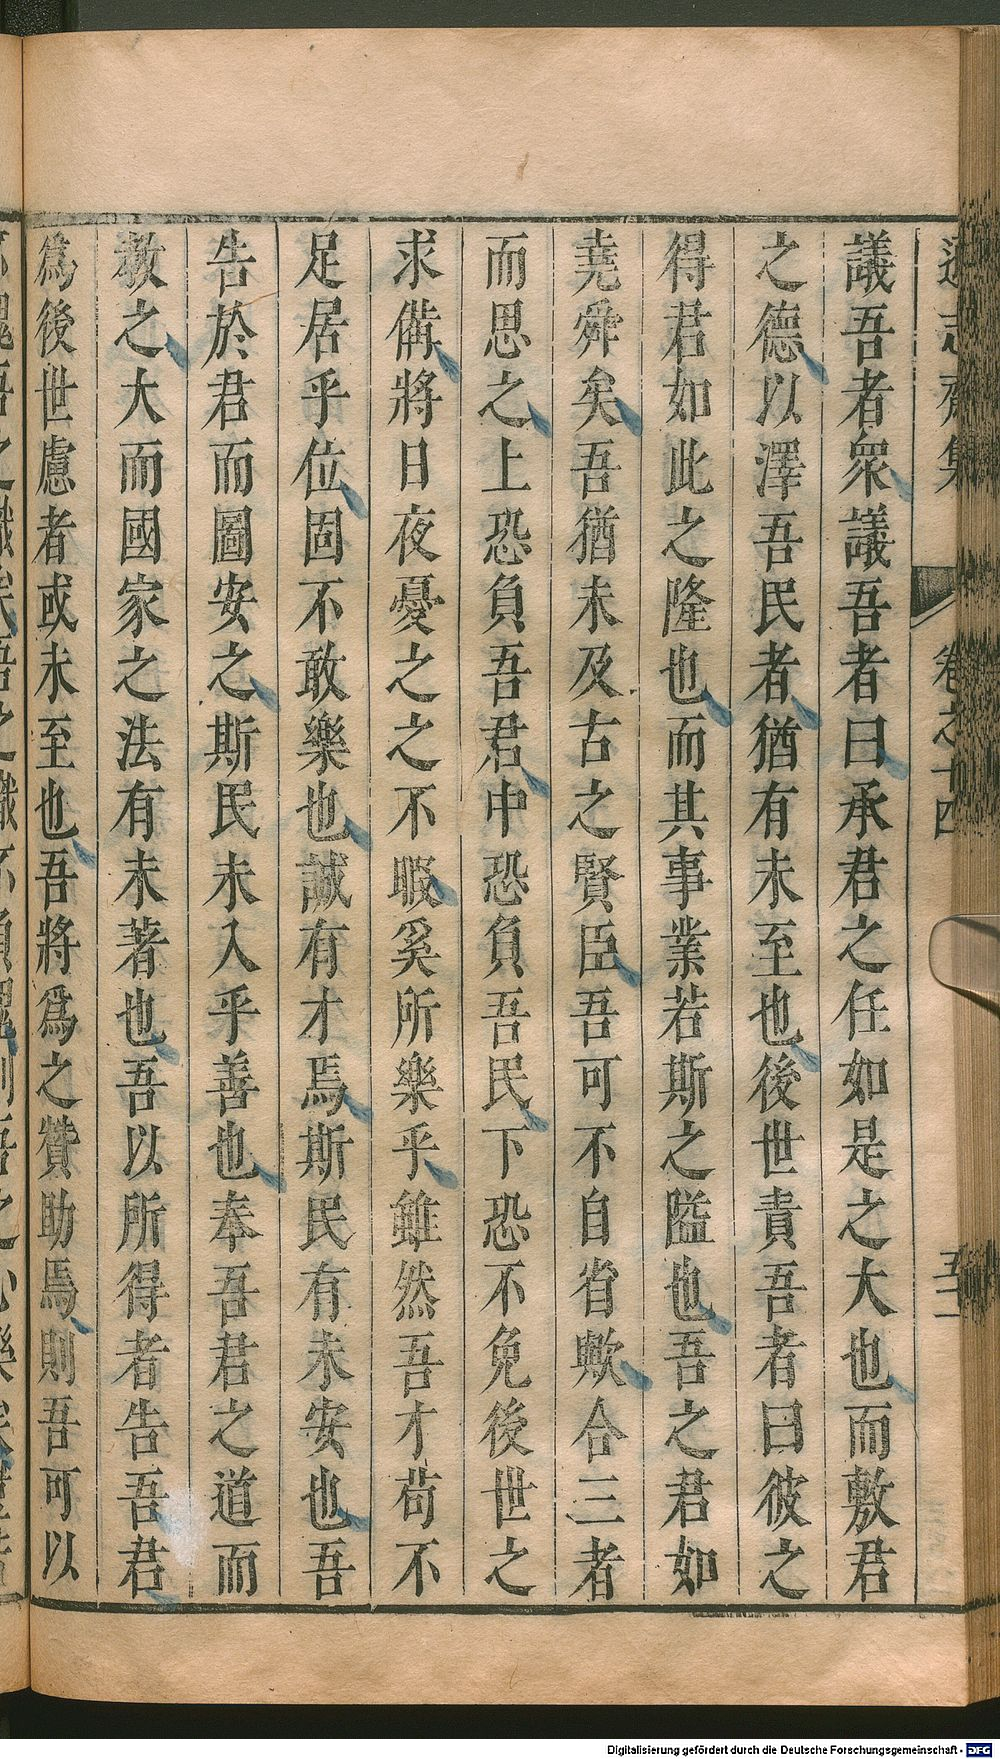 遜志齋集　卷之十四　五十二
議吾者衆議吾者曰承君之任如是之大也而敷君
之德以澤吾民者猶有未至也後世責吾者曰彼之
得君如此之隆也而其事業若斯之隘也吾之君如
堯舜矣吾猶未及古之賢臣吾可不自省歟合三者
而思之上恐負吾君中恐負吾民下恐不免後世之
求備將日夜憂之之不暇奚所樂乎雖然吾才苟不
足居乎位固不敢樂也誠有才焉斯民有未安也吾
告於君而圖安之斯民未入乎善也奉吾君之道而
教之大而國家之法有未著也吾以所得者告吾君
爲後世慮者或未至也吾將爲之贊助焉則吾可以
Digitalisierung gefördert durch die Deutsche Forschungsgemeinschaft - DFG